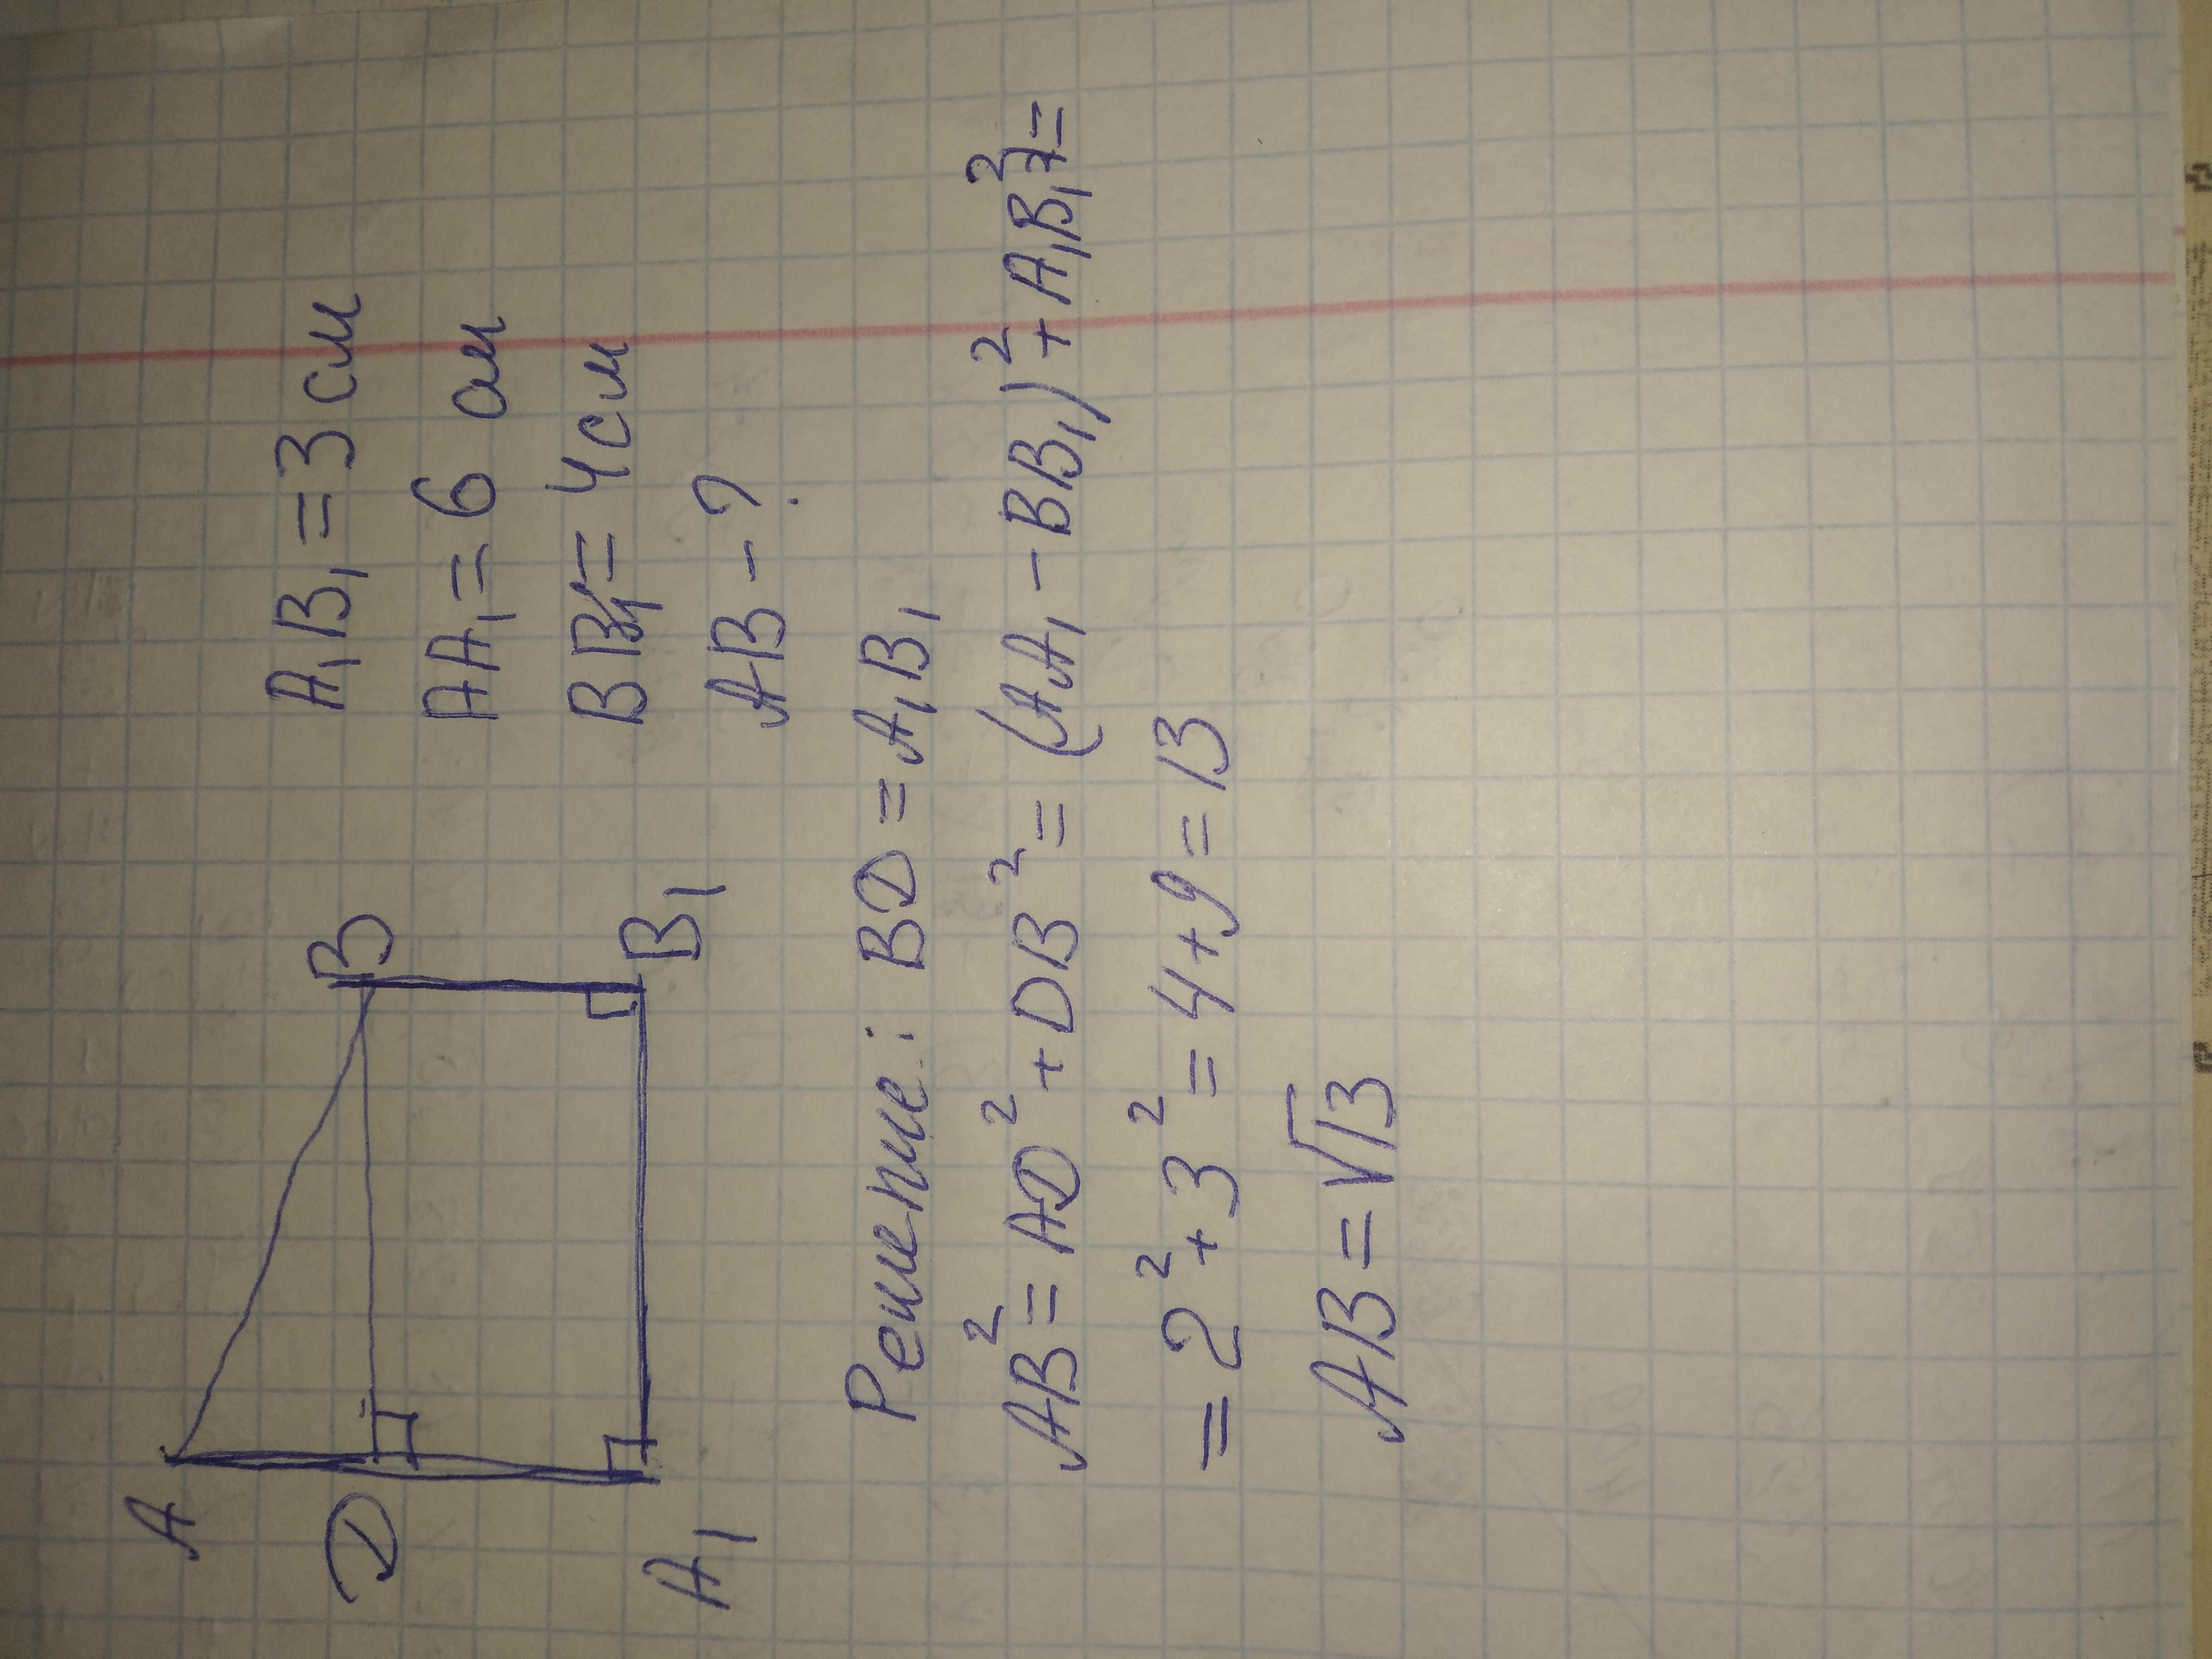 A
B
D
A₁
B₁
A₁B₁ = 3 см
AA₁ = 6 см
BB₁ = 4 см
AB - ?
Решение: BD = A₁B₁
AB² = AD² + DB² = (AA₁ - BB₁)² + A₁B₁² =
= 2² + 3² = 4 + 9 = 13
AB = √13